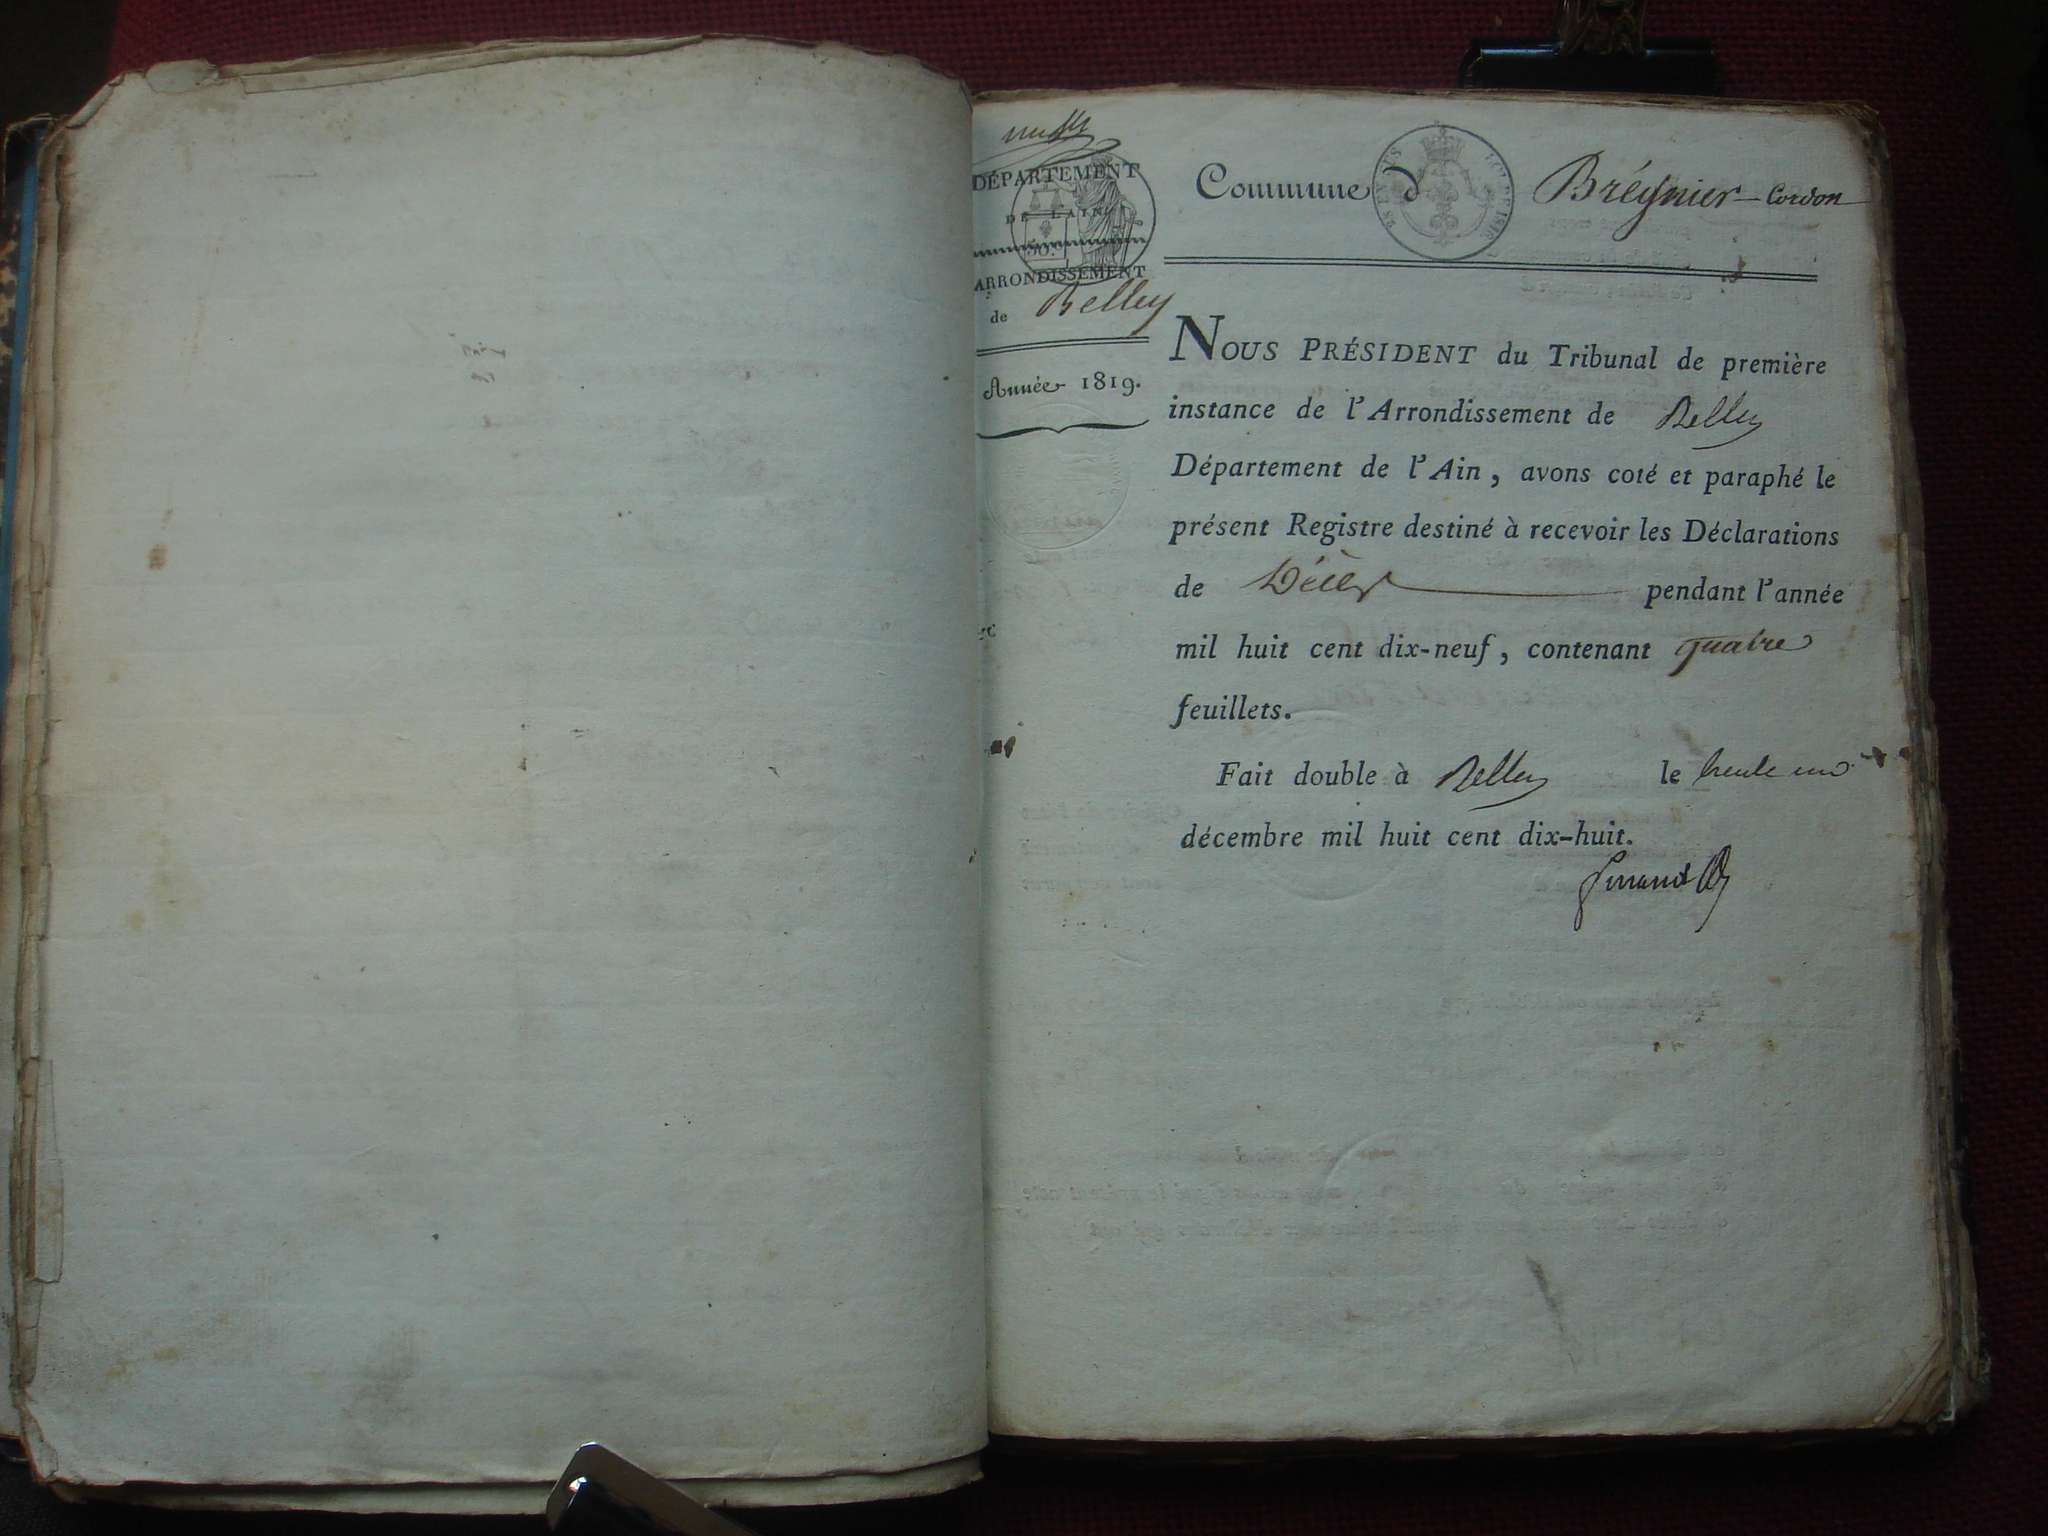 DÉPARTEMENT
DE L'AIN
ARRONDISSEMENT
de Belley
Année 1819.
Commune d Brégnier-Cordon
NOUS PRÉSIDENT du Tribunal de première
instance de l'Arrondissement de Belley
Département de l'Ain, avons coté et paraphé le
présent Registre destiné à recevoir les Déclarations
de Décès pendant l'année
mil huit cent dix-neuf, contenant quatre
feuillets.
Fait double à Belley le trente un
décembre mil huit cent dix-huit.